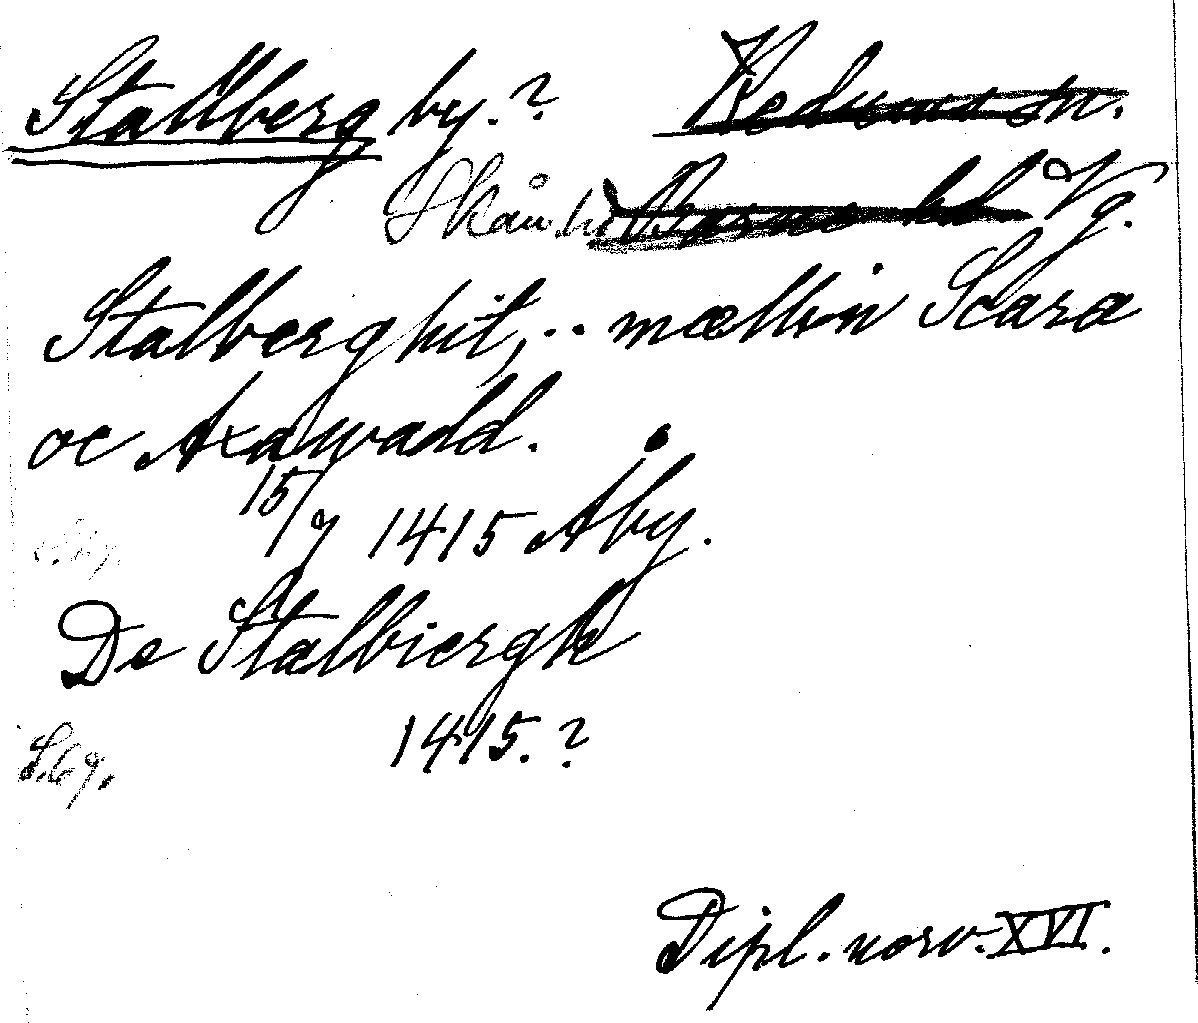 Stallberg by.? Redums sn.
Skån. hd Barne hd Vg.
Stalberghit, .. mællin Scara
oc Axawadd.
15/7 1415 Åby.
De Stalbiergh
S. 69. 1415.?
Dipl. norv. XVI.